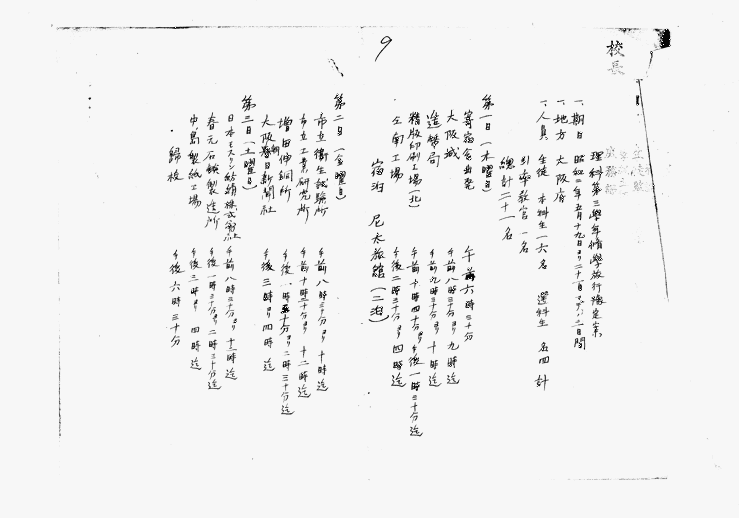 校長
理科第三學年修學旅行豫定案
一、期日 昭和二年五月十九日ヨリ二十一日マデノ三日間
一、地方 大阪府
一、人員 生徒 本科生一六名 選科生 四名 計
引率教官 一名
總計二十一名
第一日(木曜日)
寄宿舍出発 午前六時三十分
大阪城 午前八時三十分ヨリ九時迄
造幣局 午前九時三十分ヨリ十時迄
精版印刷工場(北) 午前十時四十分ヨリ午後一時三十分迄
仝南工場 午後二時三十分ヨリ四時迄
宿泊 尼木旅館(二泊)
第二日(金曜日)
市立衞生試驗所 午前八時三十分ヨリ十時迄
市立工業研究所 午前十時三十分ヨリ十二時迄
増田伸銅所 午後一時三十分ヨリ二時三十分迄
大阪朝日新聞社 午後三時ヨリ四時迄
第三日(土曜日)
日本モスリン紡績株式會社 午前八時三十分ヨリ十二時迄
春元石鹸製造所 午後一時三十分ヨリ二時三十分迄
中島製紙工場 午後三時ヨリ四時迄
歸校 午後六時三十分
9